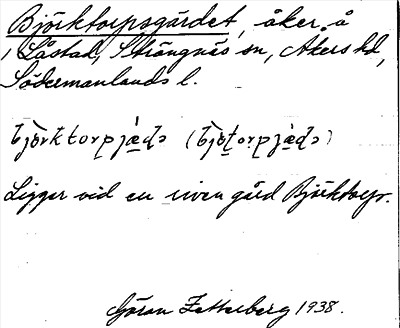 Björktorpsgärdet, åker å
Låstad, Strängnäs sn, Åkers hd,
Södermanlands l.
björktorpjä̀də (bjöṯorpjä̀də)
Ligger vid en riven gård Björktorp.
Göran Zetterberg 1938.